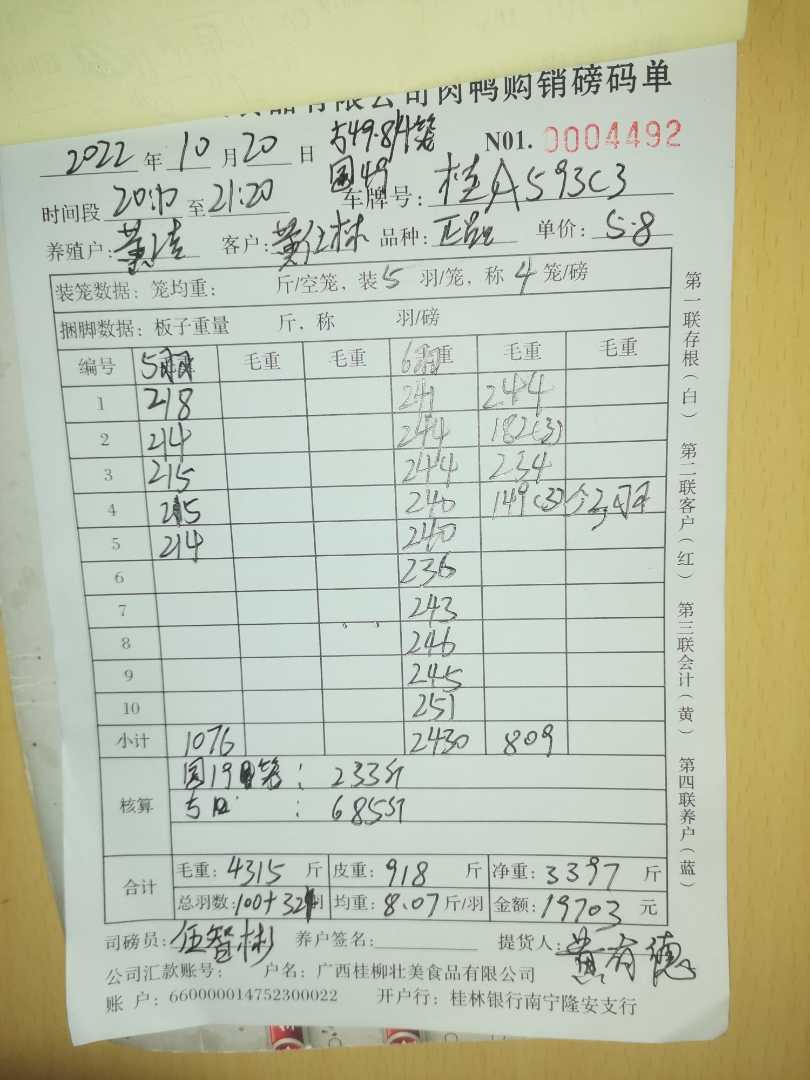 有限公司肉鸭购销磅码单
2022 年 10 月 20 日 N01. 0004492
时间段 至 21:20 车牌号: 桂A593C3
养殖户: 客户: 品种: 单价: 5.8
装笼数据: 笼均重: 斤/空笼, 装 5 羽/笼, 称 4 笼/磅
捆脚数据: 板子重量 斤, 称 羽/磅
编号 5羽 毛重 毛重 毛重 毛重
1 218 241 244
2 214 244 182(3)
3 215 244 234
4 215 240 149(3)
5 214 240
6 236
7 243
8 246
9 245
10 251
小计 1076 2430 809
核算 : 233斤
: 685斤
合计 毛重: 4315 斤 皮重: 918 斤 净重: 3397 斤
总羽数: 100+ 均重: 8.07 斤/羽 金额: 19703 元
司磅员: 伍智彬 养户签名: 提货人: 黄有德
公司汇款账号: 户名: 广西桂柳壮美食品有限公司
账 户: 660000014752300022 开户行: 桂林银行南宁隆安支行
第一联存根(白) 第二联客户(红) 第三联会计(黄) 第四联养户(蓝)